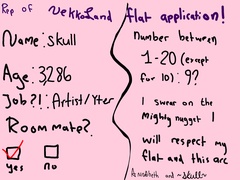 Rep of Nekkoland flat application!
Name: skull
Age: 3,286
Job?!: Artist/Yter
Roommate?
yes no
Number between
1-20 (except
for 10): 9?
I swear on the
Mighty nugget I
will respect my
flat and this arc
and ~skull~